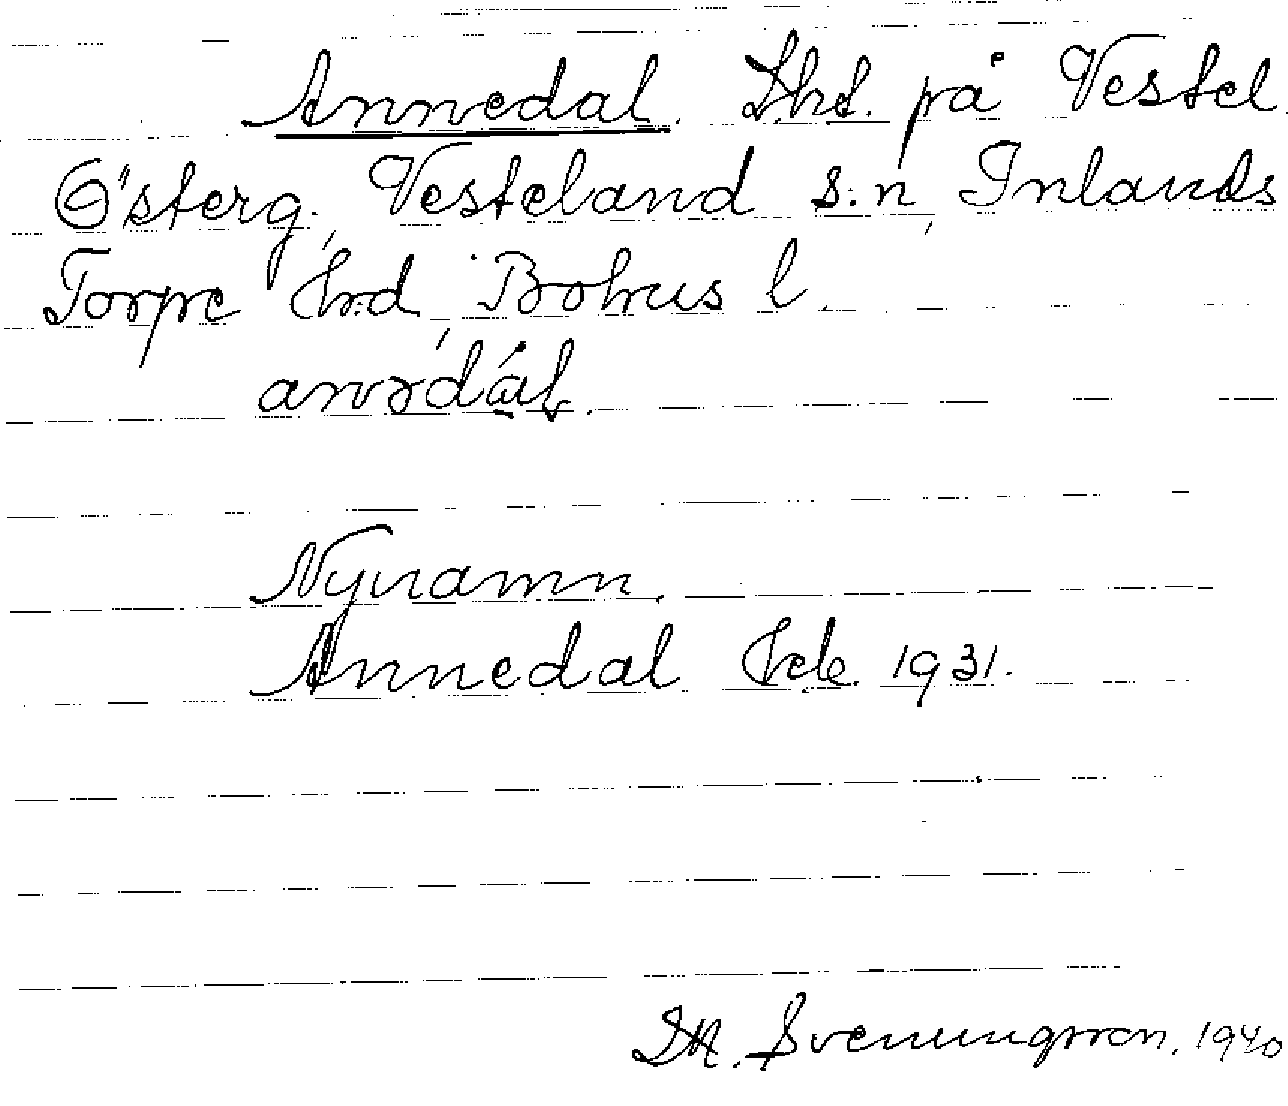 Annedal. Lht. på Vestel
Österg., Vesteland s:n, Inlands
Torpe hrd, Bohus l.
anədal.
Nynamn.
Annedal Jrb. 1931.
Svenungsson. 1940